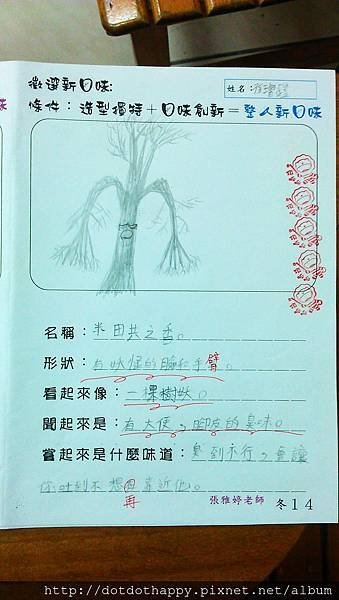 徵選新口味:
條件：造型獨特＋口味創新＝登人新口味
姓名：
名稱：米田共之香。
形狀：有妖怪的臉和手臂。
看起來像：一棵樹妖。
聞起來是：有大便、腳皮的臭味。
嘗起來是什麼味道：臭到不行，會讓
你吐到不想再靠近他。
張雅婷老師
冬14
http://dotdothappy.pixnet.net/album